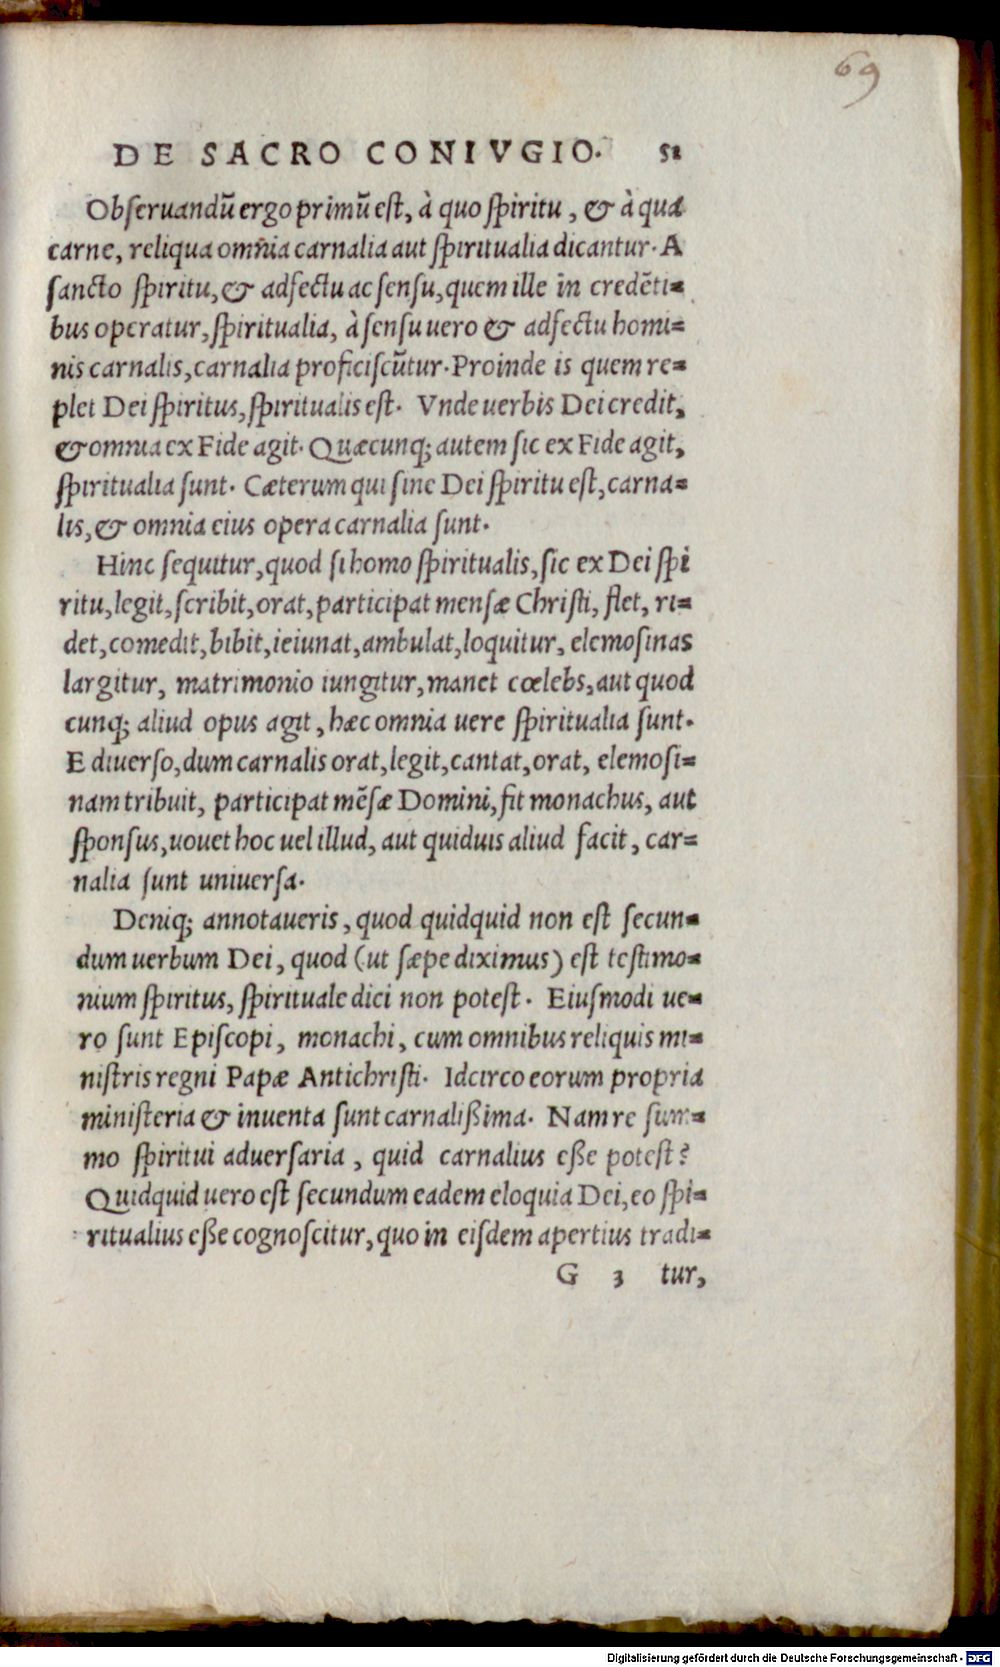 69
DE SACRO CONIVGIO. 51
Obseruandũ ergo primũ est, à quo spiritu, & à qua
carne, reliqua om̃nia carnalia aut spiritualia dicantur. A
sancto spiritu, & adfectu ac sensu, quem ille in credẽti=
bus operatur, spiritualia, à sensu uero & adfectu homi=
nis carnalis, carnalia proficiscũtur. Proinde is quem re=
plet Dei spiritus, spiritualis est. Vnde uerbis Dei credit,
& omnia ex Fide agit. Quæcunq; autem sic ex Fide agit,
spiritualia sunt. Cæterum qui sine Dei spiritu est, carna=
lis, & omnia eius opera carnalia sunt.
Hinc sequitur, quod si homo spiritualis, sic ex Dei spi
ritu, legit, scribit, orat, participat mensæ Christi, flet, ri=
det, comedit, bibit, ieiunat, ambulat, loquitur, elemosinas
largitur, matrimonio iungitur, manet cœlebs, aut quod
cunq; aliud opus agit, hæc omnia uere spiritualia sunt.
E diuerso, dum carnalis orat, legit, cantat, orat, elemosi=
nam tribuit, participat mẽsæ Domini, fit monachus, aut
sponsus, uouet hoc uel illud, aut quiduis aliud facit, car=
nalia sunt uniuersa.
Deniq; annotaueris, quod quidquid non est secun=
dum uerbum Dei, quod (ut sæpe diximus) est testimo=
nium spiritus, spirituale dici non potest. Eiusmodi ue=
ro sunt Episcopi, monachi, cum omnibus reliquis mi=
nistris regni Papæ Antichristi. Idcirco eorum propria
ministeria & inuenta sunt carnalißima. Nam re sum=
mo spiritui aduersaria, quid carnalius eße potest?
Quidquid uero est secundum eadem eloquia Dei, eo spi=
ritualius eße cognoscitur, quo in eisdem apertius tradi=
G 3 tur,
Digitalisierung gefördert durch die Deutsche Forschungsgemeinschaft - DFG